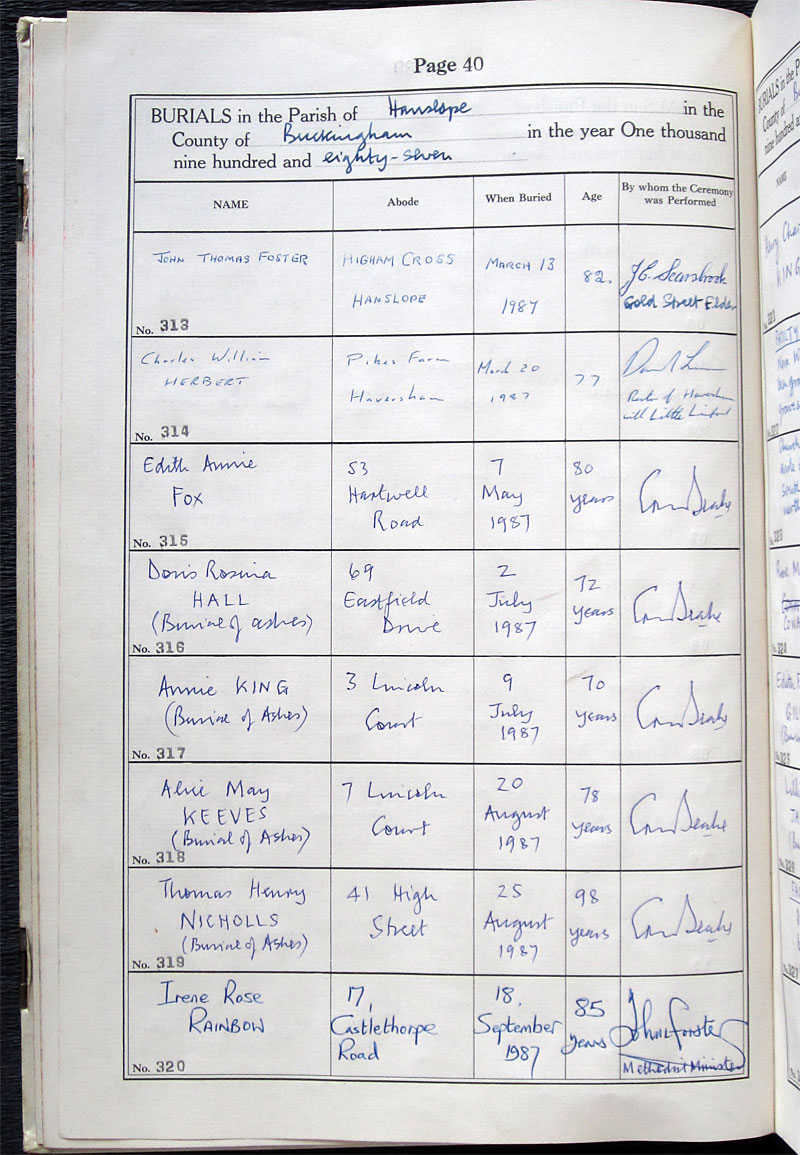 Page 40
BURIALS in the Parish of Hanslope in the
County of Buckingham in the year One thousand
nine hundred and eighty-seven
NAME Abode When Buried Age By whom the Ceremony was Performed
JOHN THOMAS FOSTER HIGHAM CROSS MARCH 13 82. J.C. Scarsbrook
HANSLOPE 1987 Gold Street Elder
No. 313
Charles William Pikes Farm March 20 77
HERBERT Haversham 1987 Rector of Haversham
with Little Linford
No. 314
Edith Annie 53 7 80
FOX Hartwell May years
Road 1987
No. 315
Doris Rosina 69 2 72
HALL Eastfield July years
(Burial of ashes) Drive 1987
No. 316
Annie KING 3 Lincoln 9 70
(Burial of Ashes) Court July years
1987
No. 317
Alice May 7 Lincoln 20 78
KEEVES Court August years
(Burial of Ashes) 1987
No. 318
Thomas Henry 41 High 25 98
NICHOLLS Street August years
(Burial of Ashes) 1987
No. 319
Irene Rose 17, 18, 85
RAINBOW Castlethorpe September years John Forster
Road 1987 Methodist Minister
No. 320